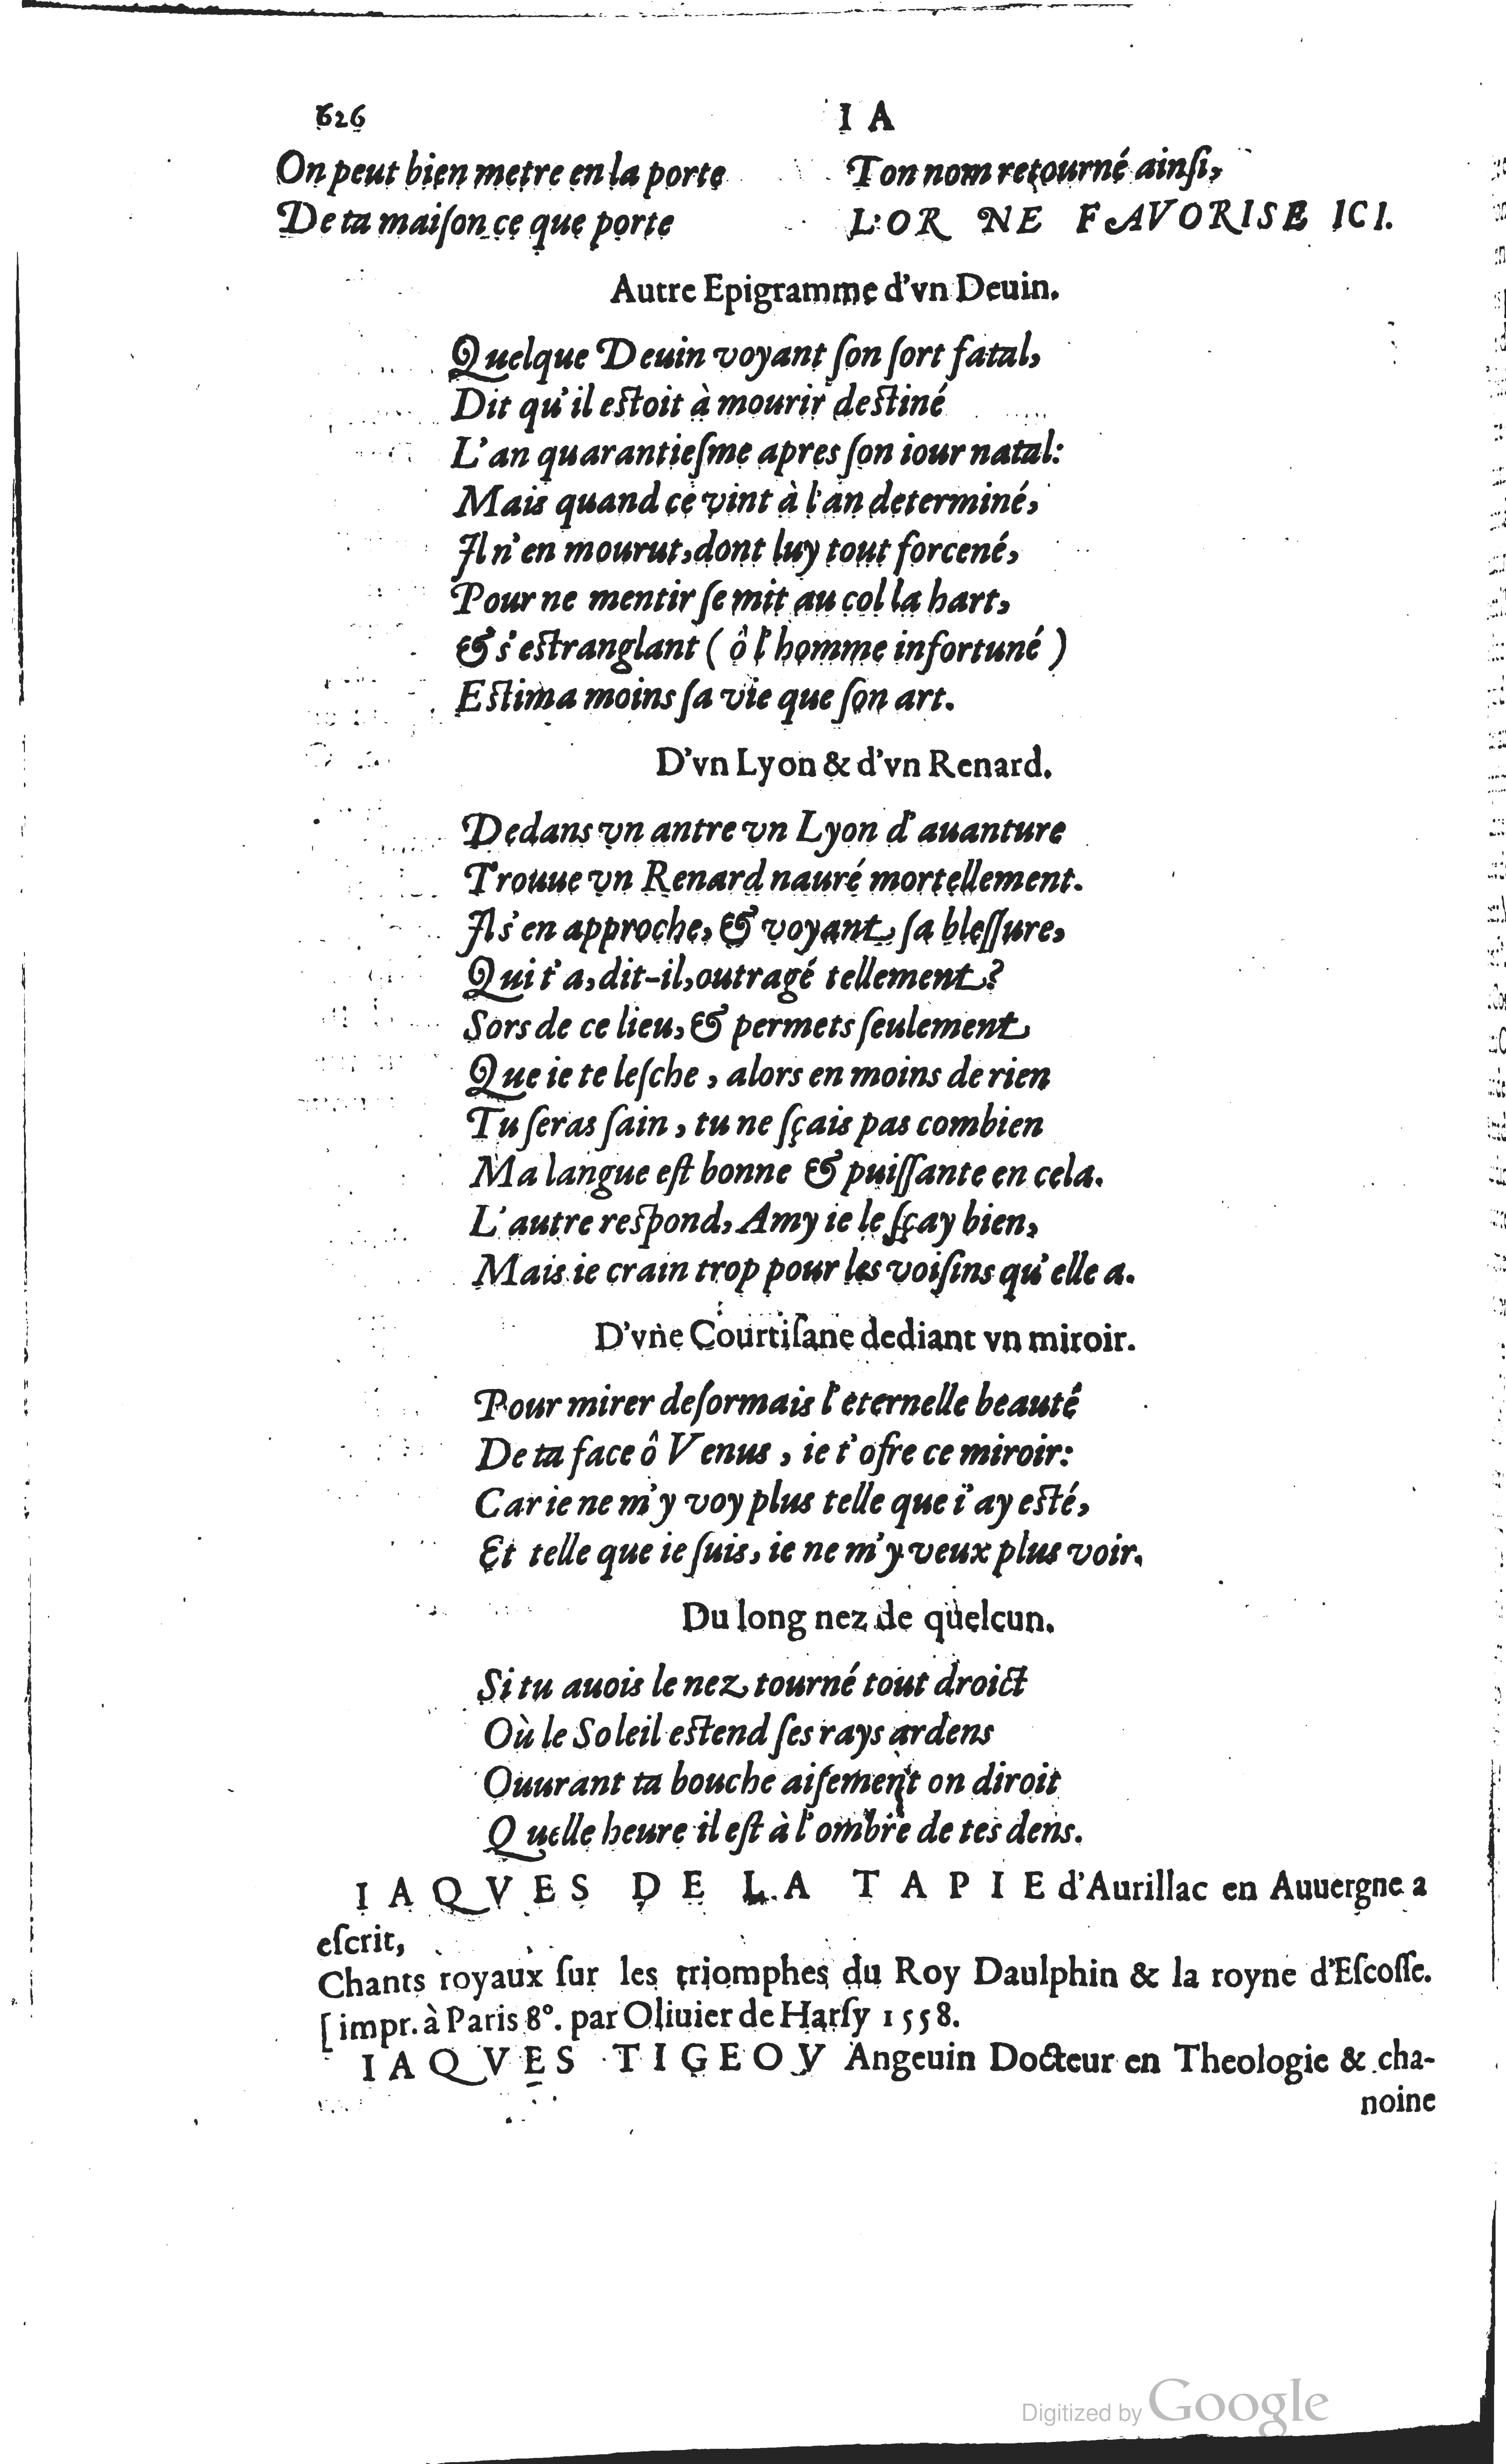 626 I A
On peut bien metre en la porte
De ta maiſon ce que porte
Ton nom retourné ainſi,
L'OR NE FAVORISE ICI.
Autre Epigramme d'vn Deuin.
Quelque Deuin voyant ſon ſort fatal,
Dit qu'il eſtoit à mourir deſtiné
L'an quarantieſme apres ſon iour natal:
Mais quand ce vint à l'an determiné,
Il n'en mourut, dont luy tout forcené,
Pour ne mentir ſe mit au col la hart,
& s'eſtranglant ( ô l'homme infortuné )
Eſtima moins ſa vie que ſon art.
D'vn Lyon & d'vn Renard.
Dedans vn antre vn Lyon d'auanture
Trouue vn Renard nauré mortellement.
Il s'en approche, & voyant ſa bleſſure,
Qui t'a, dit-il, outragé tellement?
Sors de ce lieu, & permets ſeulement
Que ie te leſche, alors en moins de rien
Tu ſeras ſain, tu ne ſçais pas combien
Ma langue eſt bonne & puiſſante en cela.
L'autre reſpond, Amy ie le ſçay bien,
Mais ie crain trop pour les voiſins qu'elle a.
D'vne Courtiſane dediant vn miroir.
Pour mirer deſormais l'eternelle beauté
De ta face ô Venus, ie t'ofre ce miroir:
Car ie ne m'y voy plus telle que i'ay eſté,
Et telle que ie ſuis, ie ne m'y veux plus voir.
Du long nez de quelcun.
Si tu auois le nez tourné tout droict
Où le Soleil eſtend ſes rays ardens
Ouurant ta bouche aiſement on diroit
Quelle heure il eſt à l'ombre de tes dens.
IAQVES DE LA TAPIE d'Aurillac en Auuergne a
eſcrit,
Chants royaux ſur les triomphes du Roy Daulphin & la royne d'Eſcoſſe.
[impr. à Paris 8°. par Oliuier de Harſy 1558.
IAQVES TIGEOV Angeuin Docteur en Theologie & cha-
noine
Digitized by Google